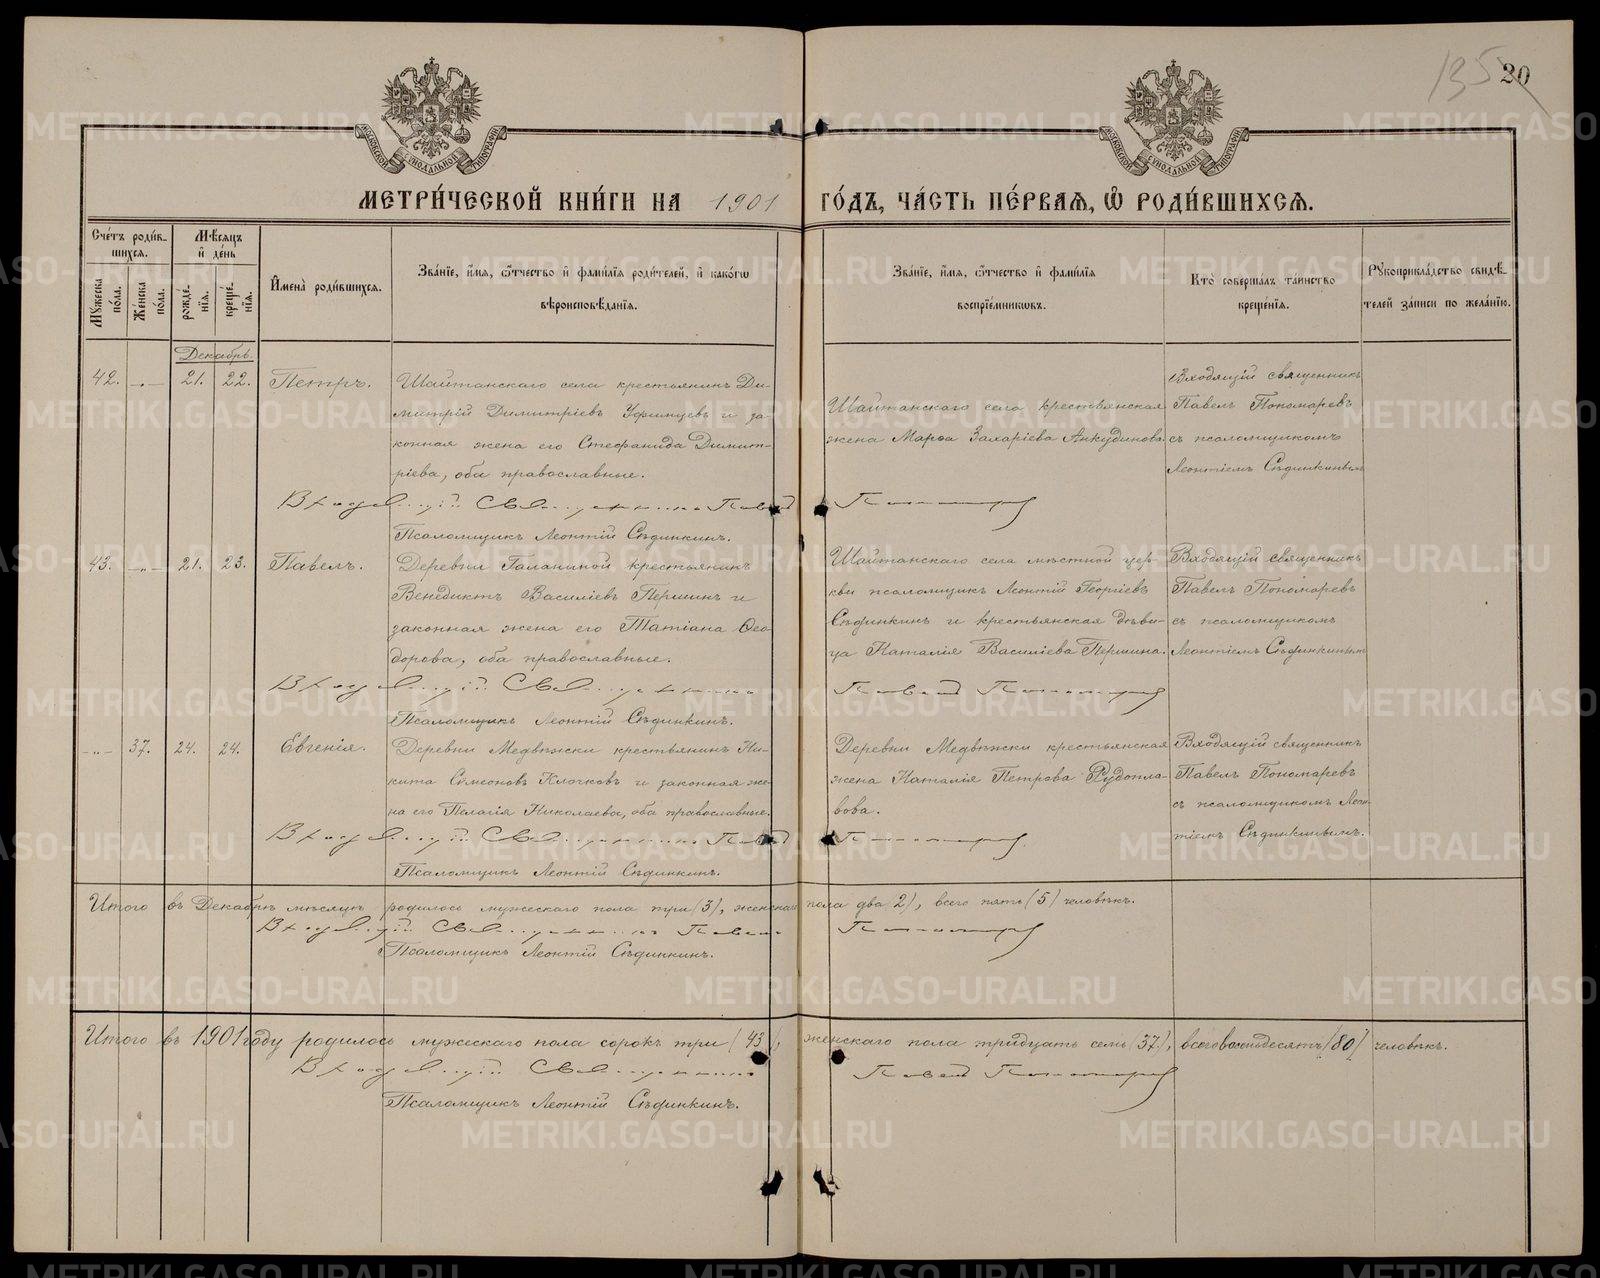 135
20
МОСКОВСКОЙ СѴНОДАЛЬНОЙ ТИПОГРАФІИ
МОСКОВСКОЙ СѴНОДАЛЬНОЙ ТИПОГРАФІИ
МЕТРИ́ЧЕСКОЙ КНИ́ГИ НА 1901 ГО́ДЪ, ЧА́СТЬ ПЕ́РВАѦ, Ѿ РОДИ́ВШИХСѦ.
Сче́тъ роди́в-
шихсѧ.
Мꙋжеска по́ла.
Же́нска по́ла.
Мѣ́сѧцъ
и҆ де́нь
рожде́-
нїѧ.
креще́-
нїѧ.
И҆мена̀ роди́вшихсѧ.
Зва́нїе, и҆́мѧ, ѻ҆́тчество и҆ фами́лїѧ роди́телей, и҆ како́гѡ
вѣроисповѣ́данїѧ.
Зва́нїе, и҆́мѧ, ѻ҆́тчество и҆ фами́лїѧ
воспрїе́мникѡвъ.
Кто̀ соверша́лъ та́инство
креще́нїѧ.
Рꙋкоприкла́дство свидѣ́-
телей за́писи по жела́нїю.
Декабрь.
42. „ 21. 22. Петръ.
Шайтанскаго села крестьянинъ Ди-
митрій Димитріевъ Уфинцевъ и за-
конная жена его Стефанида Димит-
ріева, оба православные.
Шайтанскаго села крестьянская
жена Марѳа Захаріева Анкудинова.
Входящій священникъ
Павелъ Пономаревъ
съ псаломщикомъ
Леонтіемъ Сѣдинкинымъ
Входящій Священникъ Павелъ Пономаревъ
Псаломщикъ Леонтій Сѣдинкинъ.
43. „ 21. 23. Павелъ.
Деревни Галаниной крестьянинъ
Венедиктъ Василіевъ Першинъ и
законная жена его Татіана Ѳео-
дорова, оба православные.
Шайтанскаго села мѣстной цер-
кви псаломщикъ Леонтій Георгіевъ
Сѣдинкинъ и крестьянская дѣви-
ца Наталія Василіева Першина.
Входящій священникъ
Павелъ Пономаревъ
съ псаломщикомъ
Леонтіемъ Сѣдинкинымъ
Входящій Священникъ Павелъ Пономаревъ
Псаломщикъ Леонтій Сѣдинкинъ.
„ 37. 24. 24. Евгенія.
Деревни Медвѣжки крестьянинъ Ни-
кита Симеоновъ Клочковъ и законная же-
на его Пелагія Николаева, оба православные.
Деревни Медвѣжки крестьянская
жена Наталія Петрова Рудопла-
вова.
Входящій священникъ
Павелъ Пономаревъ
съ псаломщикомъ Леон-
тіемъ Сѣдинкинымъ.
Входящій Священникъ Павелъ Пономаревъ
Псаломщикъ Леонтій Сѣдинкинъ.
Итого въ Декабрѣ мѣсяцѣ родилось мужескаго пола три (3), женскаго пола два (2), всего пять (5) человѣкъ.
Входящій Священникъ Павелъ Пономаревъ
Псаломщикъ Леонтій Сѣдинкинъ.
Итого въ 1901 году родилось мужескаго пола сорокъ три (43), женскаго пола тридцать семь (37), всего восемьдесятъ (80) человѣкъ.
Входящій Священникъ Павелъ Пономаревъ
Псаломщикъ Леонтій Сѣдинкинъ.